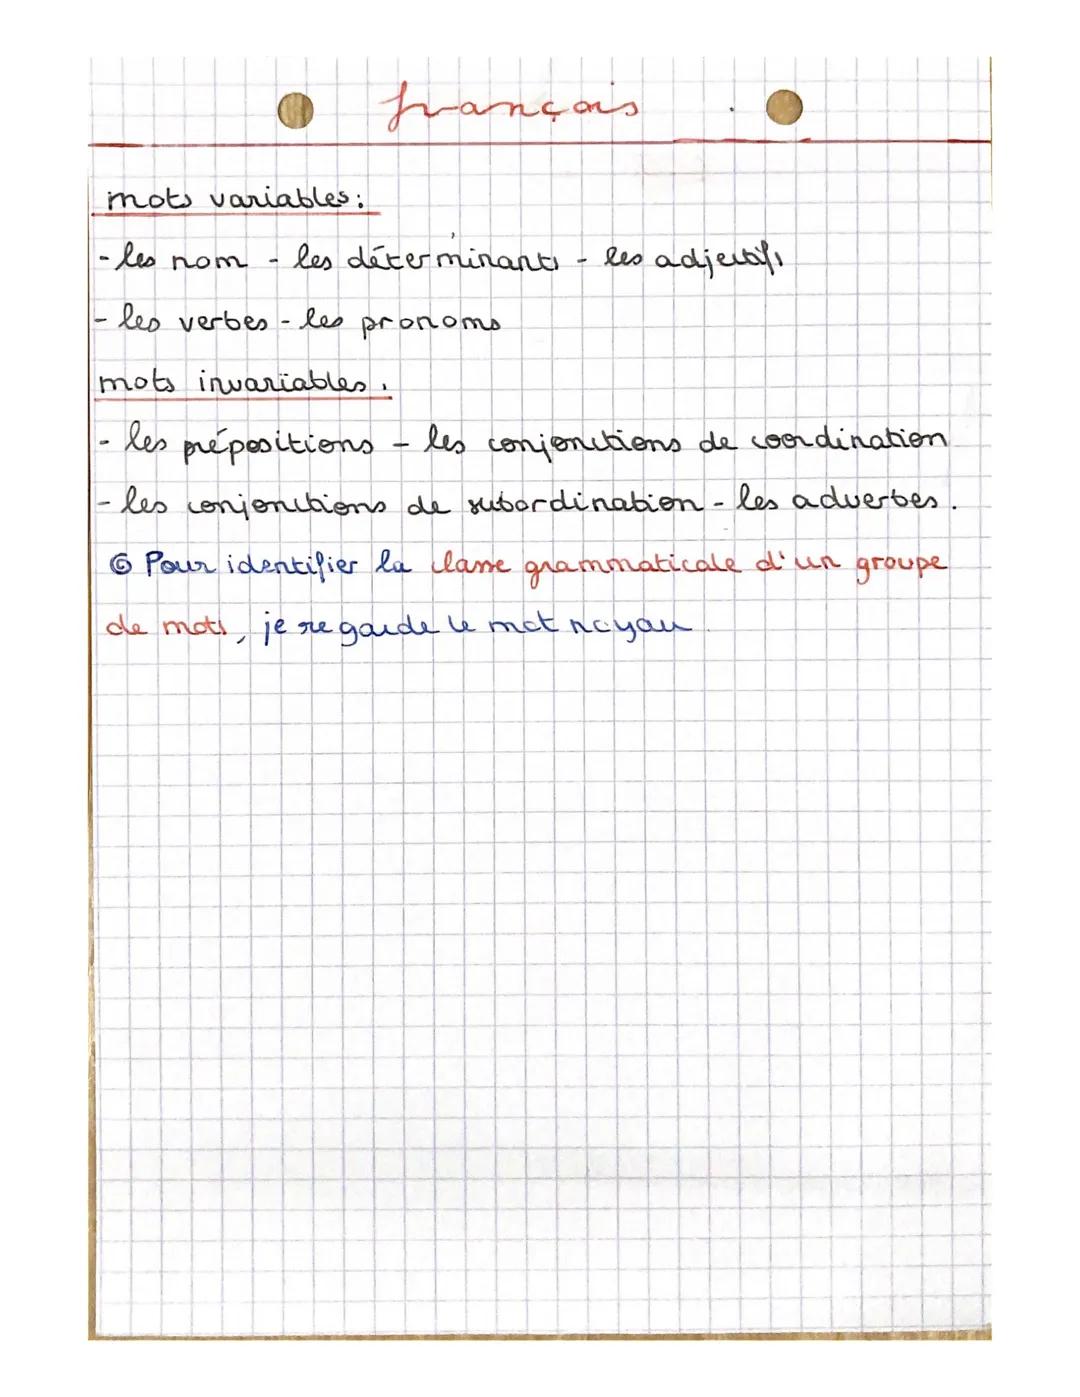 français
mots variables :
- les nom - les déterminants - les adjectifs
- les verbes - les pronoms
mots invariables.
- les prépositions - les conjonctions de coordination
- les conjonctions de subordination - les adverbes.
⑥ Pour identifier la classe grammaticale d'un groupe
de mots, je regarde le mot noyau.